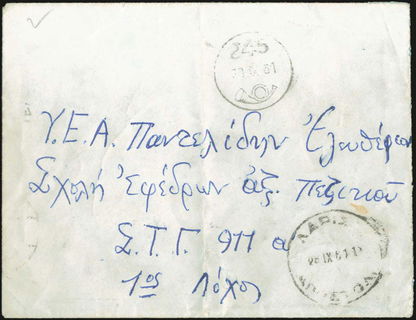 245
Υ.Ε.Α. Παντελίδην Ἐλευθέριον
Σχολή Ἐφέδρων ἀξ. Πεζικοῦ
Σ.Τ.Γ. 911 α
1ος Λόχος
ΛΑΡΙΣ
26 IX 61